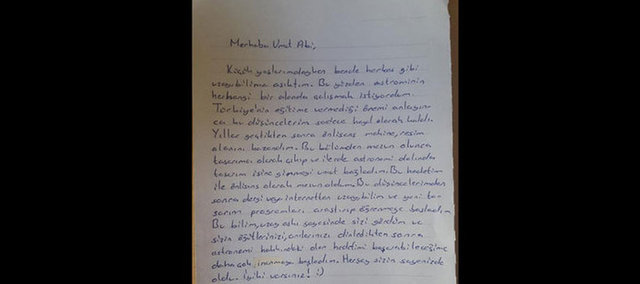 Merhaba Umut Abi,
Küçük yaşlarımdayken bende herkes gibi
uzaybilime aşıktım. Bu yüzden astrominin
herhangi bir alanda çalışmak istiyordum.
Türkiye'nin eğitime vermediği önemi anlayın-
ca bu düşüncelerim sadece hayal olarak kaldı.
Yıllar geçtikten sonra önlisans makine, resim
alanını kazandım. Bu bölümden mezun olunca
tasarımcı olarak çalışıp ve ilerde astronomi dalından
tasarım işine girmeyi umut başladım. Bu hedefim
ile önlisans olarak mezun oldum. Bu düşüncelerimden
sonra dergi veya internetten uzaybilim ve yeni ta-
sarım programları araştırıp öğrenmeye başladım.
Bu bilim, uzay aşkı sayesinde sizi gördüm ve
sizin öğütlerinizi, anılarınızı dinledikten sonra
astronomi hakkındaki olan hedefimi başarabileceğime
daha çok inanmaya başladım. Herşey sizin sayenizde
oldu. İyiki varsınız! :)